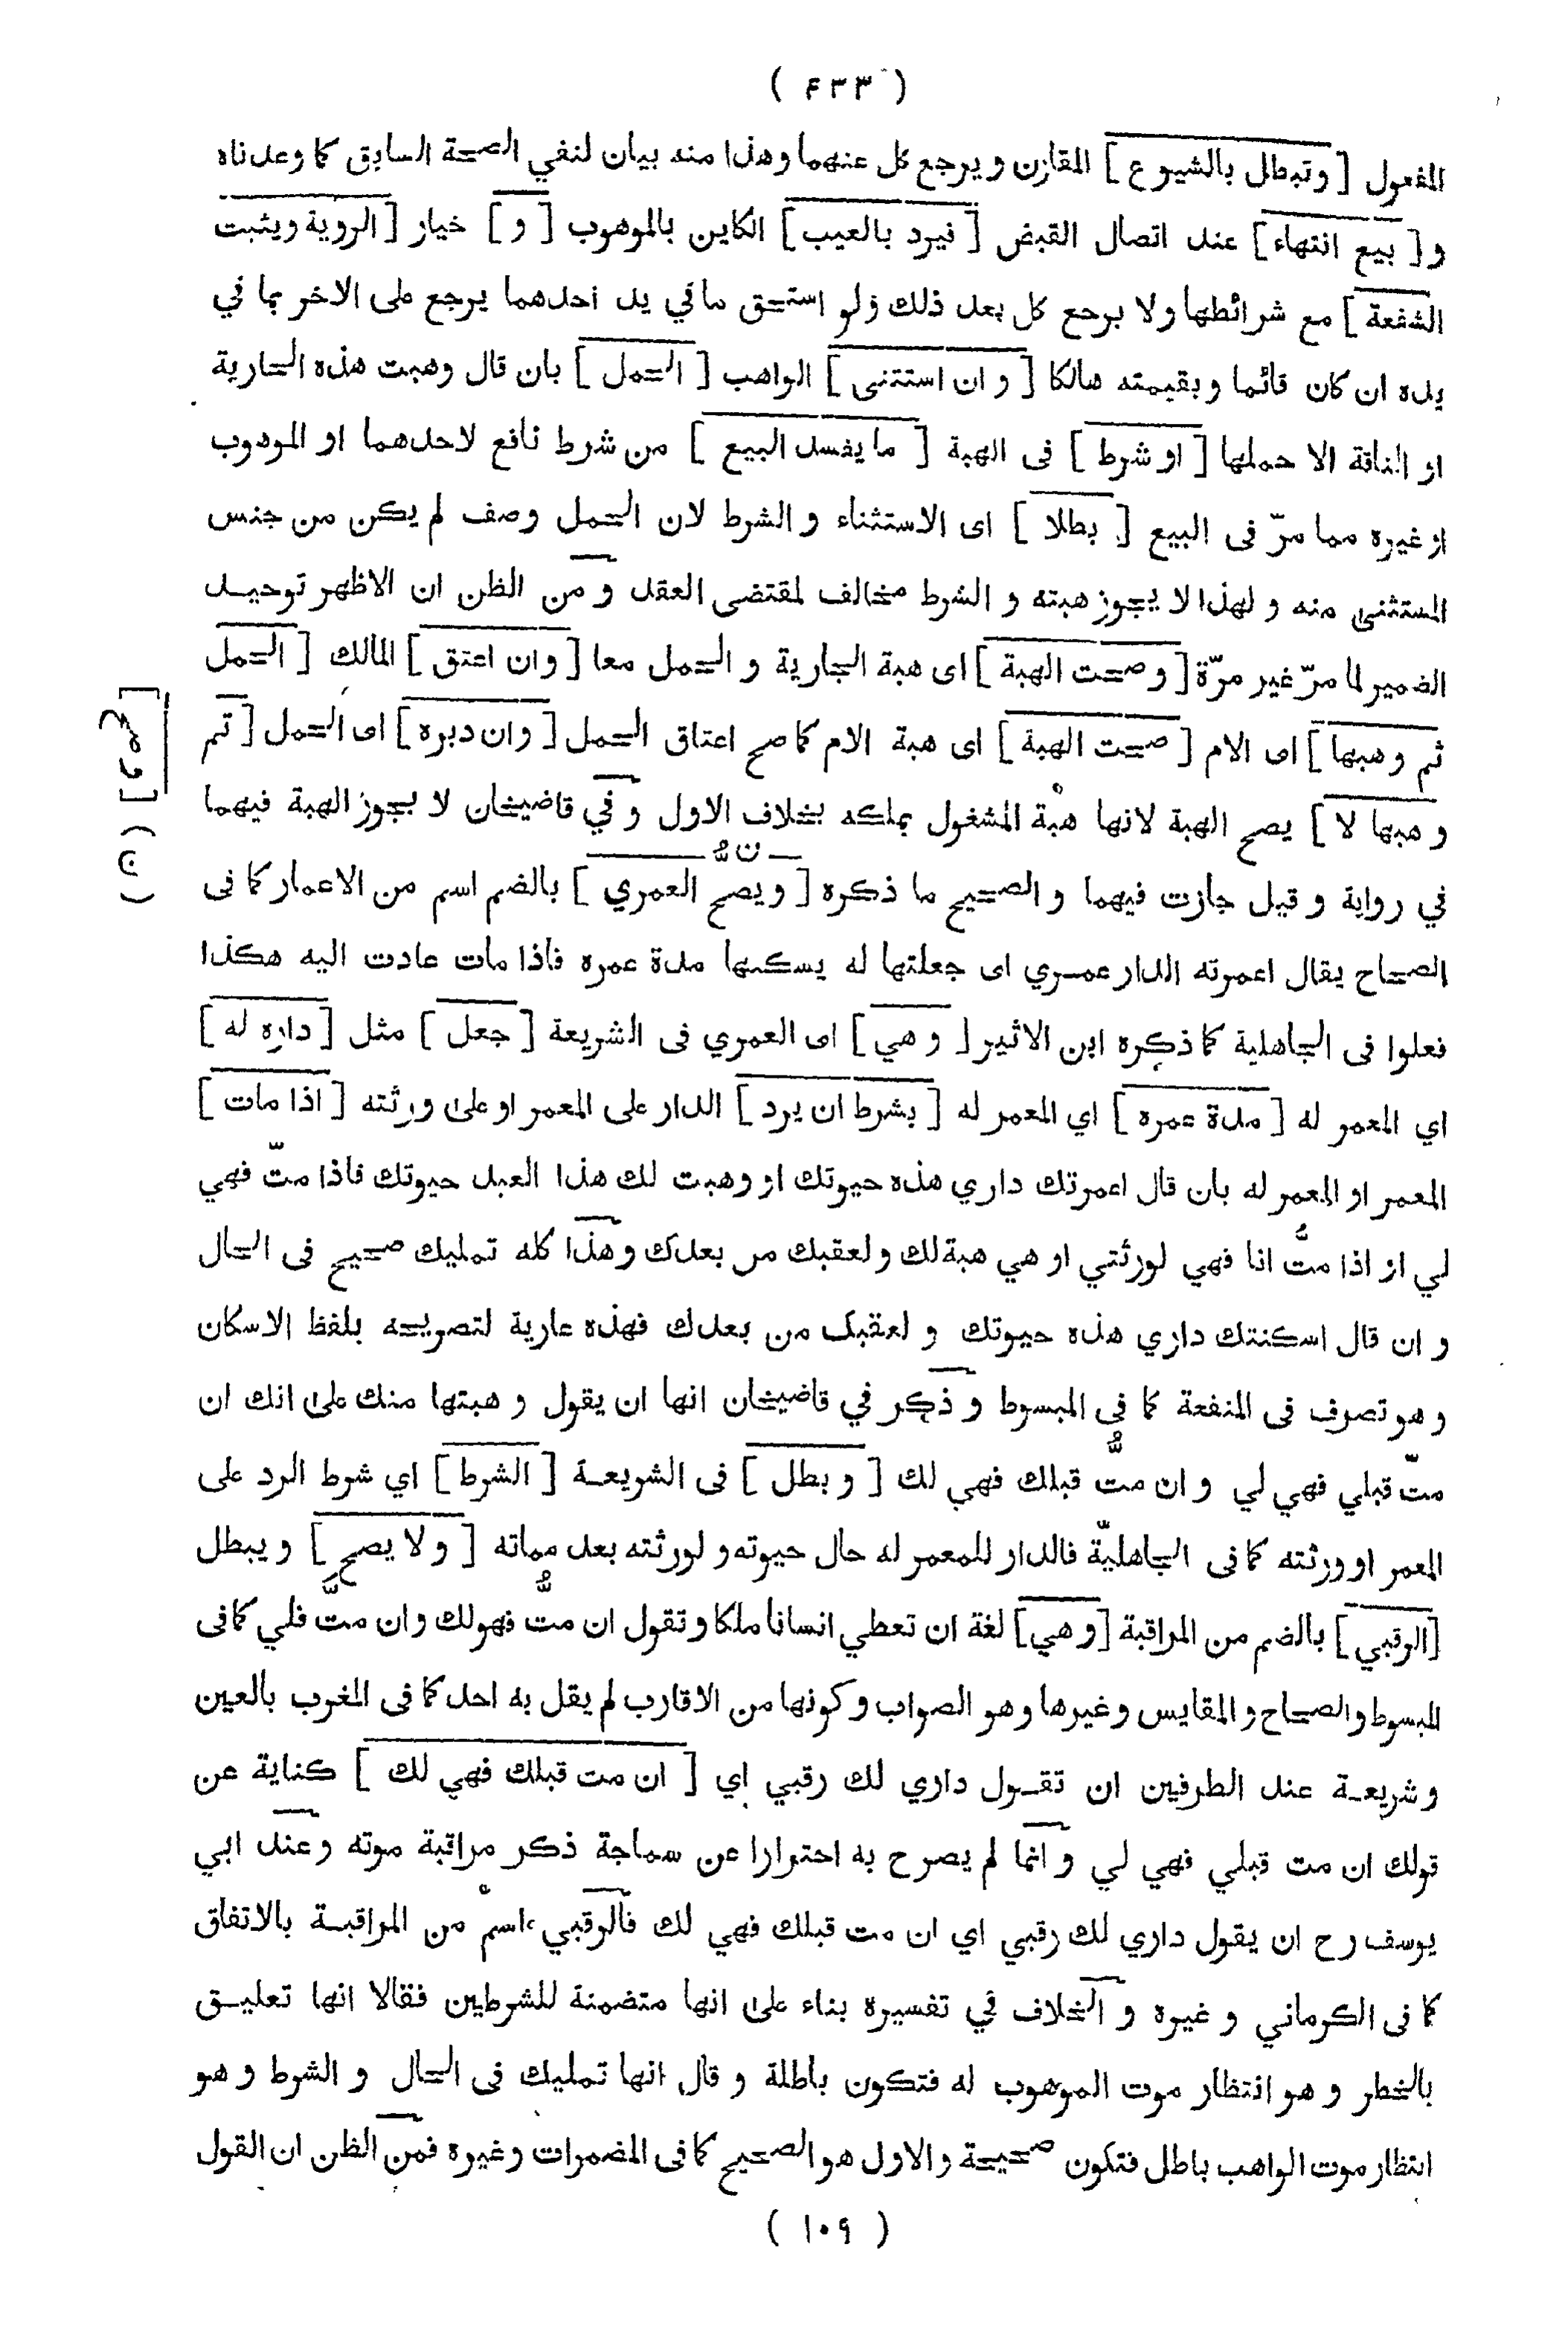 ( ۴۳۳ )
المفعول [ وتبطل بالشيوع ] المقارن ويرجع كل عنهما وهذا منه بيان لنفي الصحة السابق كما وعدناه
و [ بيع انتهاء ] عند اتصال القبض [ فيرد بالعيب ] الكاين بالموهوب [ و ] خيار [ الروية ويثبت
الشفعة ] مع شرائطها ولا يرجع كل بعد ذلك ولو استحق ما في يد احدهما يرجع على الاخر بما في
يده ان كان قائما وبقيمته هالكا [ وان استثنى ] الواهب [ الحمل ] بان قال وهبت هذه الجارية
او الناقة الا حملها [ او شرط ] فى الهبة [ ما يفسد البيع ] من شرط نافع لاحدهما او الموهوب
او غيره مما مرّ فى البيع [ بطلا ] اى الاستثناء و الشرط لان الحمل وصف لم يكن من جنس
المستثنى منه و لهذا لا يجوز هبته و الشرط مخالف لمقتضى العقد و من الظن ان الاظهر توحيد
الضمير لما مرّ غير مرّة [ وصحت الهبة ] اى هبة الجارية و الحمل معا [ وان اعتق ] المالك [ الحمل
ثم وهبها ] اى الام [ صحت الهبة ] اى هبة الام كما صح اعتاق الحمل [ وان دبره ] اى الحمل [ ثم
وهبها لا ] يصح الهبة لانها هبة المشغول بملكه بخلاف الاول و في قاضيخان لا يجوز الهبة فيهما
في رواية و قيل جازت فيهما و الصحيح ما ذكره [ ويصح العمري ] بالضم اسم من الاعمار كما فى
الصحاح يقال اعمرته الدار عمري اى جعلتها له يسكنها مدة عمره فاذا مات عادت اليه هكذا
فعلوا فى الجاهلية كما ذكره ابن الاثير [ وهي ] اى العمري فى الشريعة [ جعل ] مثل [ داره له ]
اي المعمر له [ مدة عمره ] اي المعمر له [ بشرط ان يرد ] الدار على المعمر او على ورثته [ اذا مات ]
المعمر او المعمر له بان قال اعمرتك داري هذه حيوتك او وهبت لك هذا العبد حيوتك فاذا متّ فهي
لي او اذا متُّ انا فهي لورثتي او هي هبة لك ولعقبك من بعدك وهذا كله تمليك صحيح فى الحال
و ان قال اسكنتك داري هذه حيوتك و لعقبك من بعدك فهذه عارية لتصريحه بلفظ الاسكان
و هو تصرف فى المنفعة كما فى المبسوط و ذكر في قاضيخان انها ان يقول و هبتها منك على انك ان
متّ قبلي فهي لي و ان متُّ قبلك فهي لك [ و بطل ] فى الشريعة [ الشرط ] اي شرط الرد على
المعمر او ورثته كما فى الجاهليّة فالدار للمعمر له حال حيوته و لورثته بعد مماته [ ولا يصح ] و يبطل
[ الرقبي ] بالضم من المراقبة [ وهي ] لغة ان تعطي انسانا ملكا و تقول ان متُّ فهولك وان متَّ فلي كما فى
المبسوط والصحاح و المقايس وغيرها وهو الصواب وكونها من الاقارب لم يقل به احد كما فى المغرب بالعين
و شريعة عند الطرفين ان تقول داري لك رقبي اي [ ان مت قبلك فهي لك ] كناية عن
قولك ان مت قبلي فهي لي و انما لم يصرح به احترازا عن سماجة ذكر مراقبة موته وعند ابي
يوسف رح ان يقول داري لك رقبي اي ان مت قبلك فهي لك فالرقبي اسم من المراقبة بالاتفاق
كما فى الكرماني و غيره و الخلاف في تفسيره بناء على انها متضمنة للشرطين فقالا انها تعليق
بالخطر و هو انتظار موت الموهوب له فتكون باطلة و قال انها تمليك فى الحال و الشرط و هو
انتظار موت الواهب باطل فتكون صحيحة والاول هو الصحيح كما فى المضمرات وغيره فمن الظن ان القول
( ١٠٩ )
[ وصح ] ( ن )